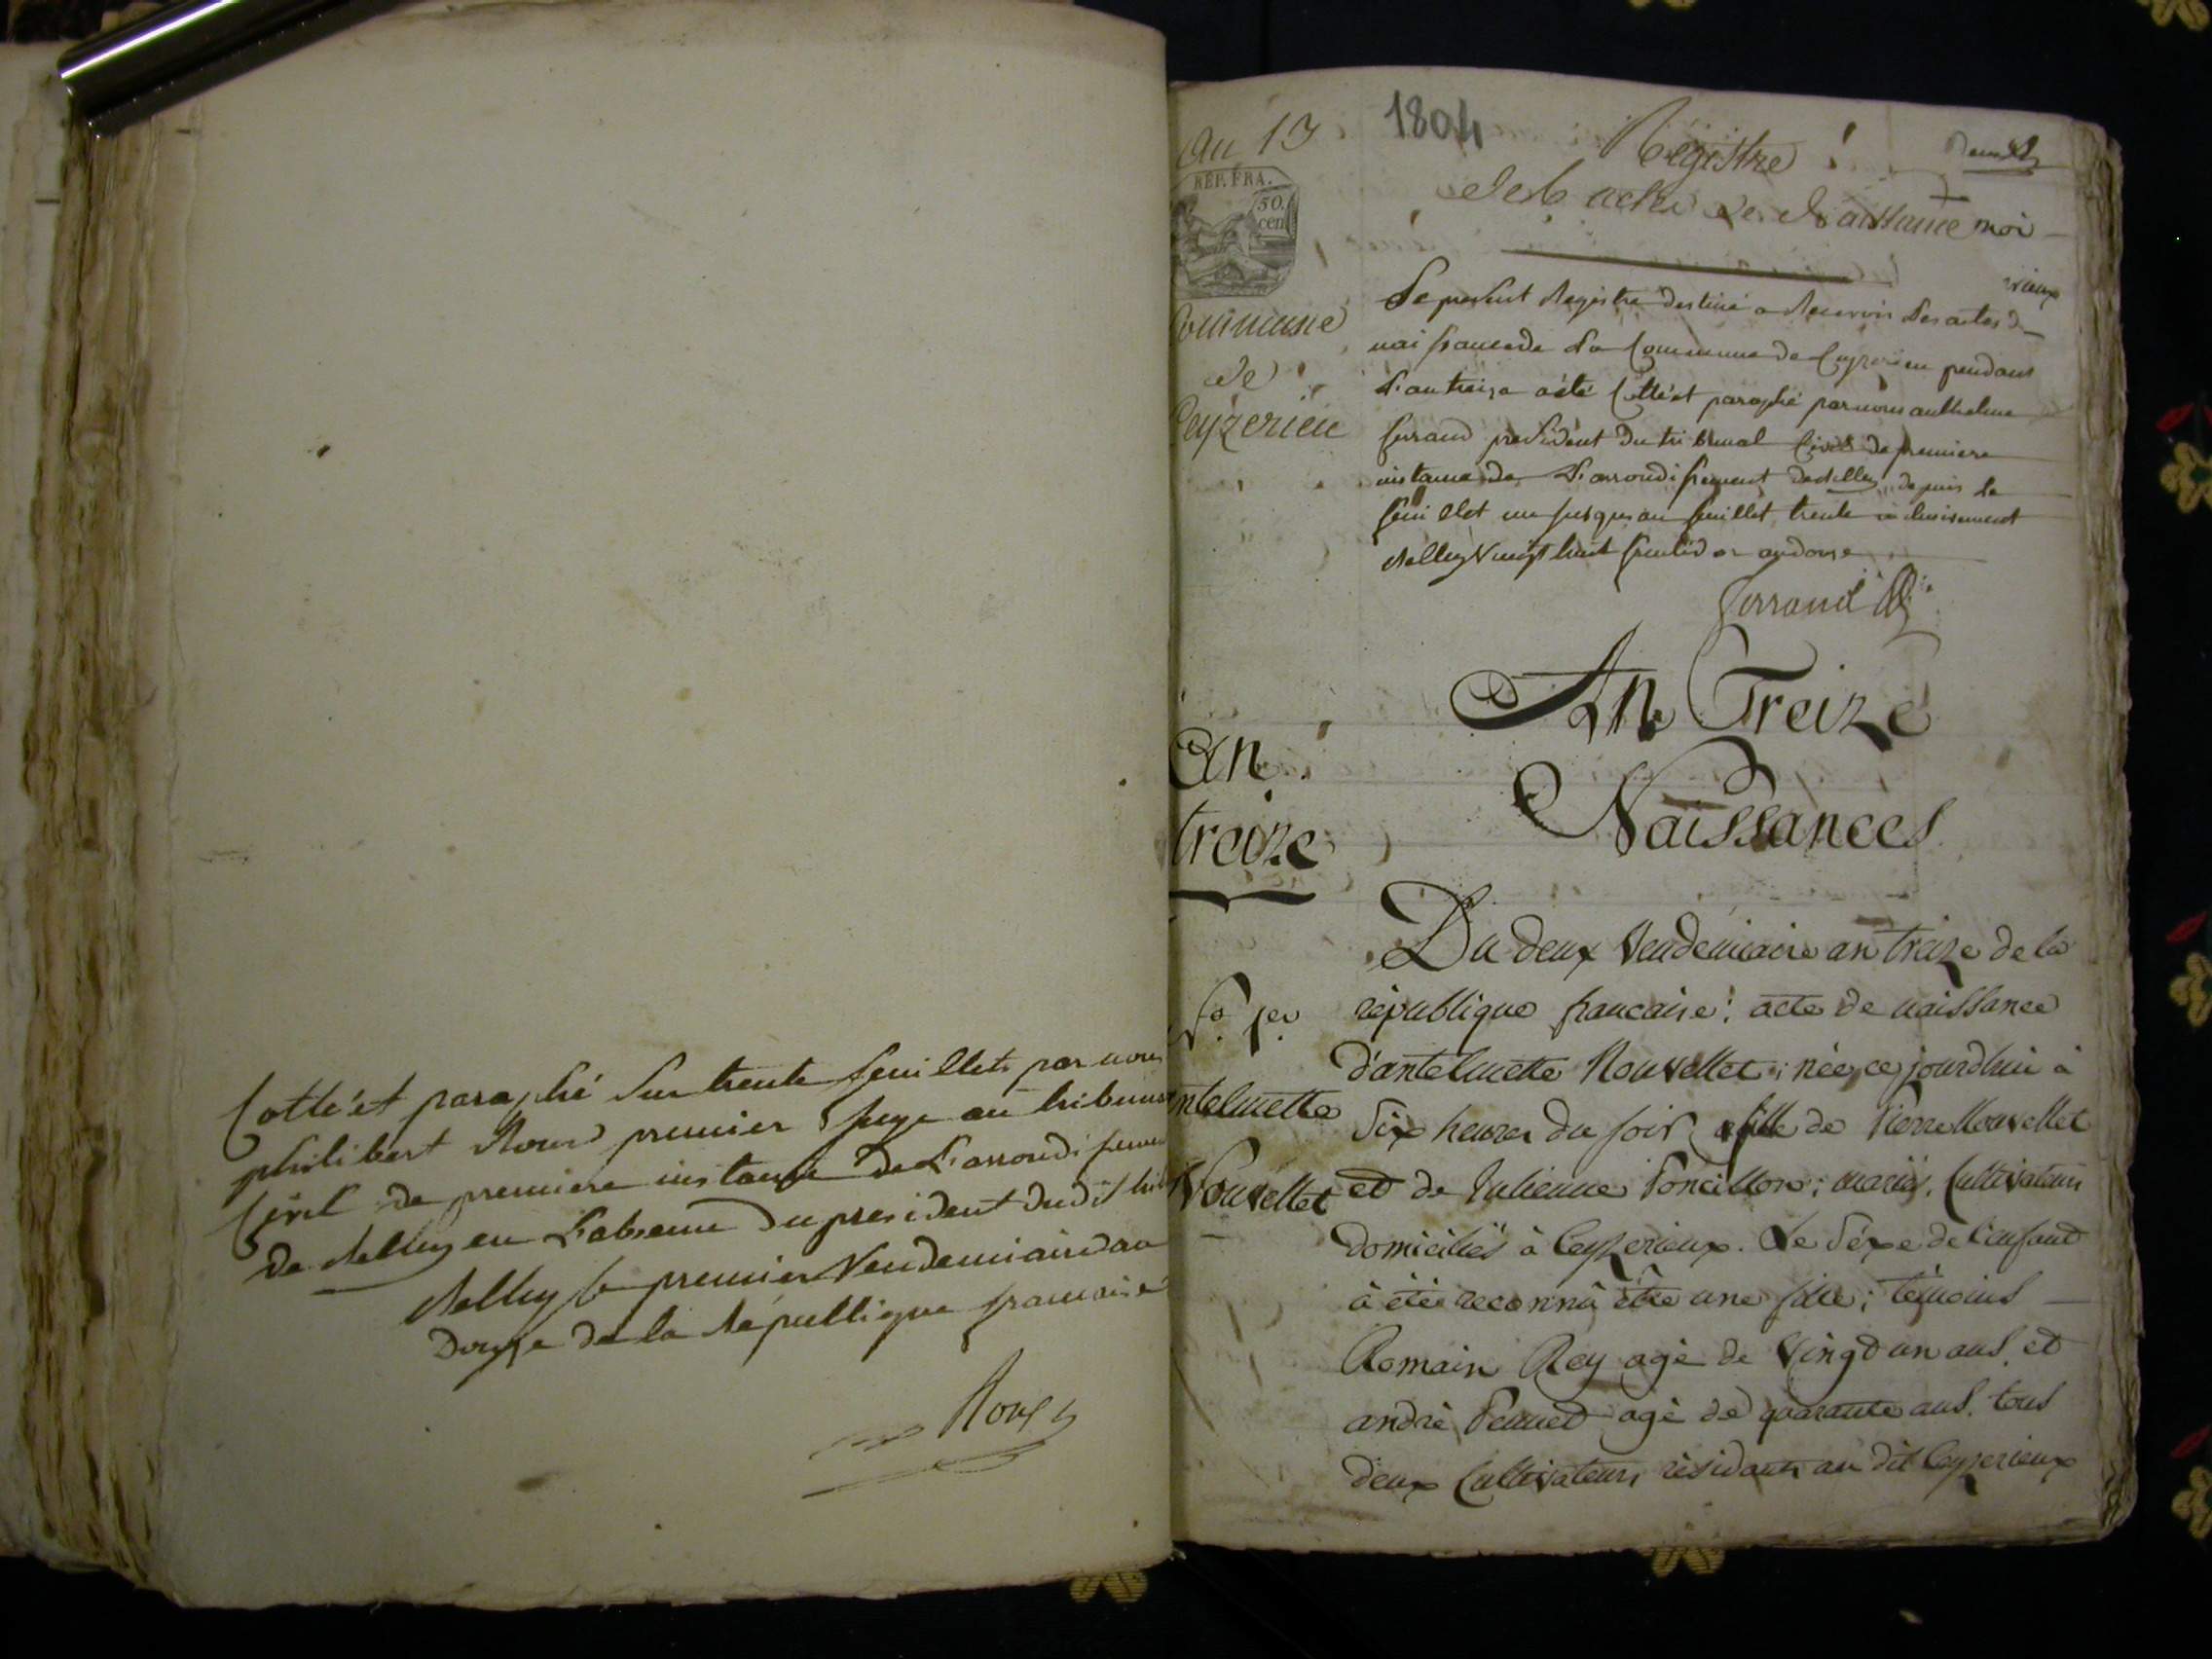 Cotté et paraphé sur trente feuillets par nous
philibert Roux premier Juge au tribunal
Civil de premiere instance de L'arrondissem
de Belley en L'absence du president dudit trib
Belley le premier Vendemiaire an
Douze de la République francaise
Roux
An 13
1804
Registre
Des actes de Naissance
REP. FRA.
50.
cen
Commune
de
Ceyzerieu
Le present Registre destiné a Recevoir Les actes de
naissance de La Commune de Ceyzerieu pendant
L'an treize a été Cotté et paraphé par nous anthelme
ferrand president du tribunal Civil de premiere
instance de L'arrondissement de Belley, depuis le
feuillet un jusques au feuillet trente inclusivement
Belley Vingt huit fructidor an douze
ferrand
An Treize
Naissances
An
treize
Du deux Vendemiaire an treize de la
république francaise: acte de naissance
d'antelmette Nouvellet; née ce jourdhui à
Six heures du soir, fille de Pierre Nouvellet
et de Julienne Poncillon; mariés, Cultivateurs
domiciliés à Ceyzerieux. Le Séxe de l'enfant
à été reconnû être une fille; témoins
Romain Rey agé de Vingt un ans, et
andré Pennet agé de quarante ans. tous
deux Cultivateurs résidants au dit Ceyzerieux
N.º 1.er
ntelmette
Nouvellet